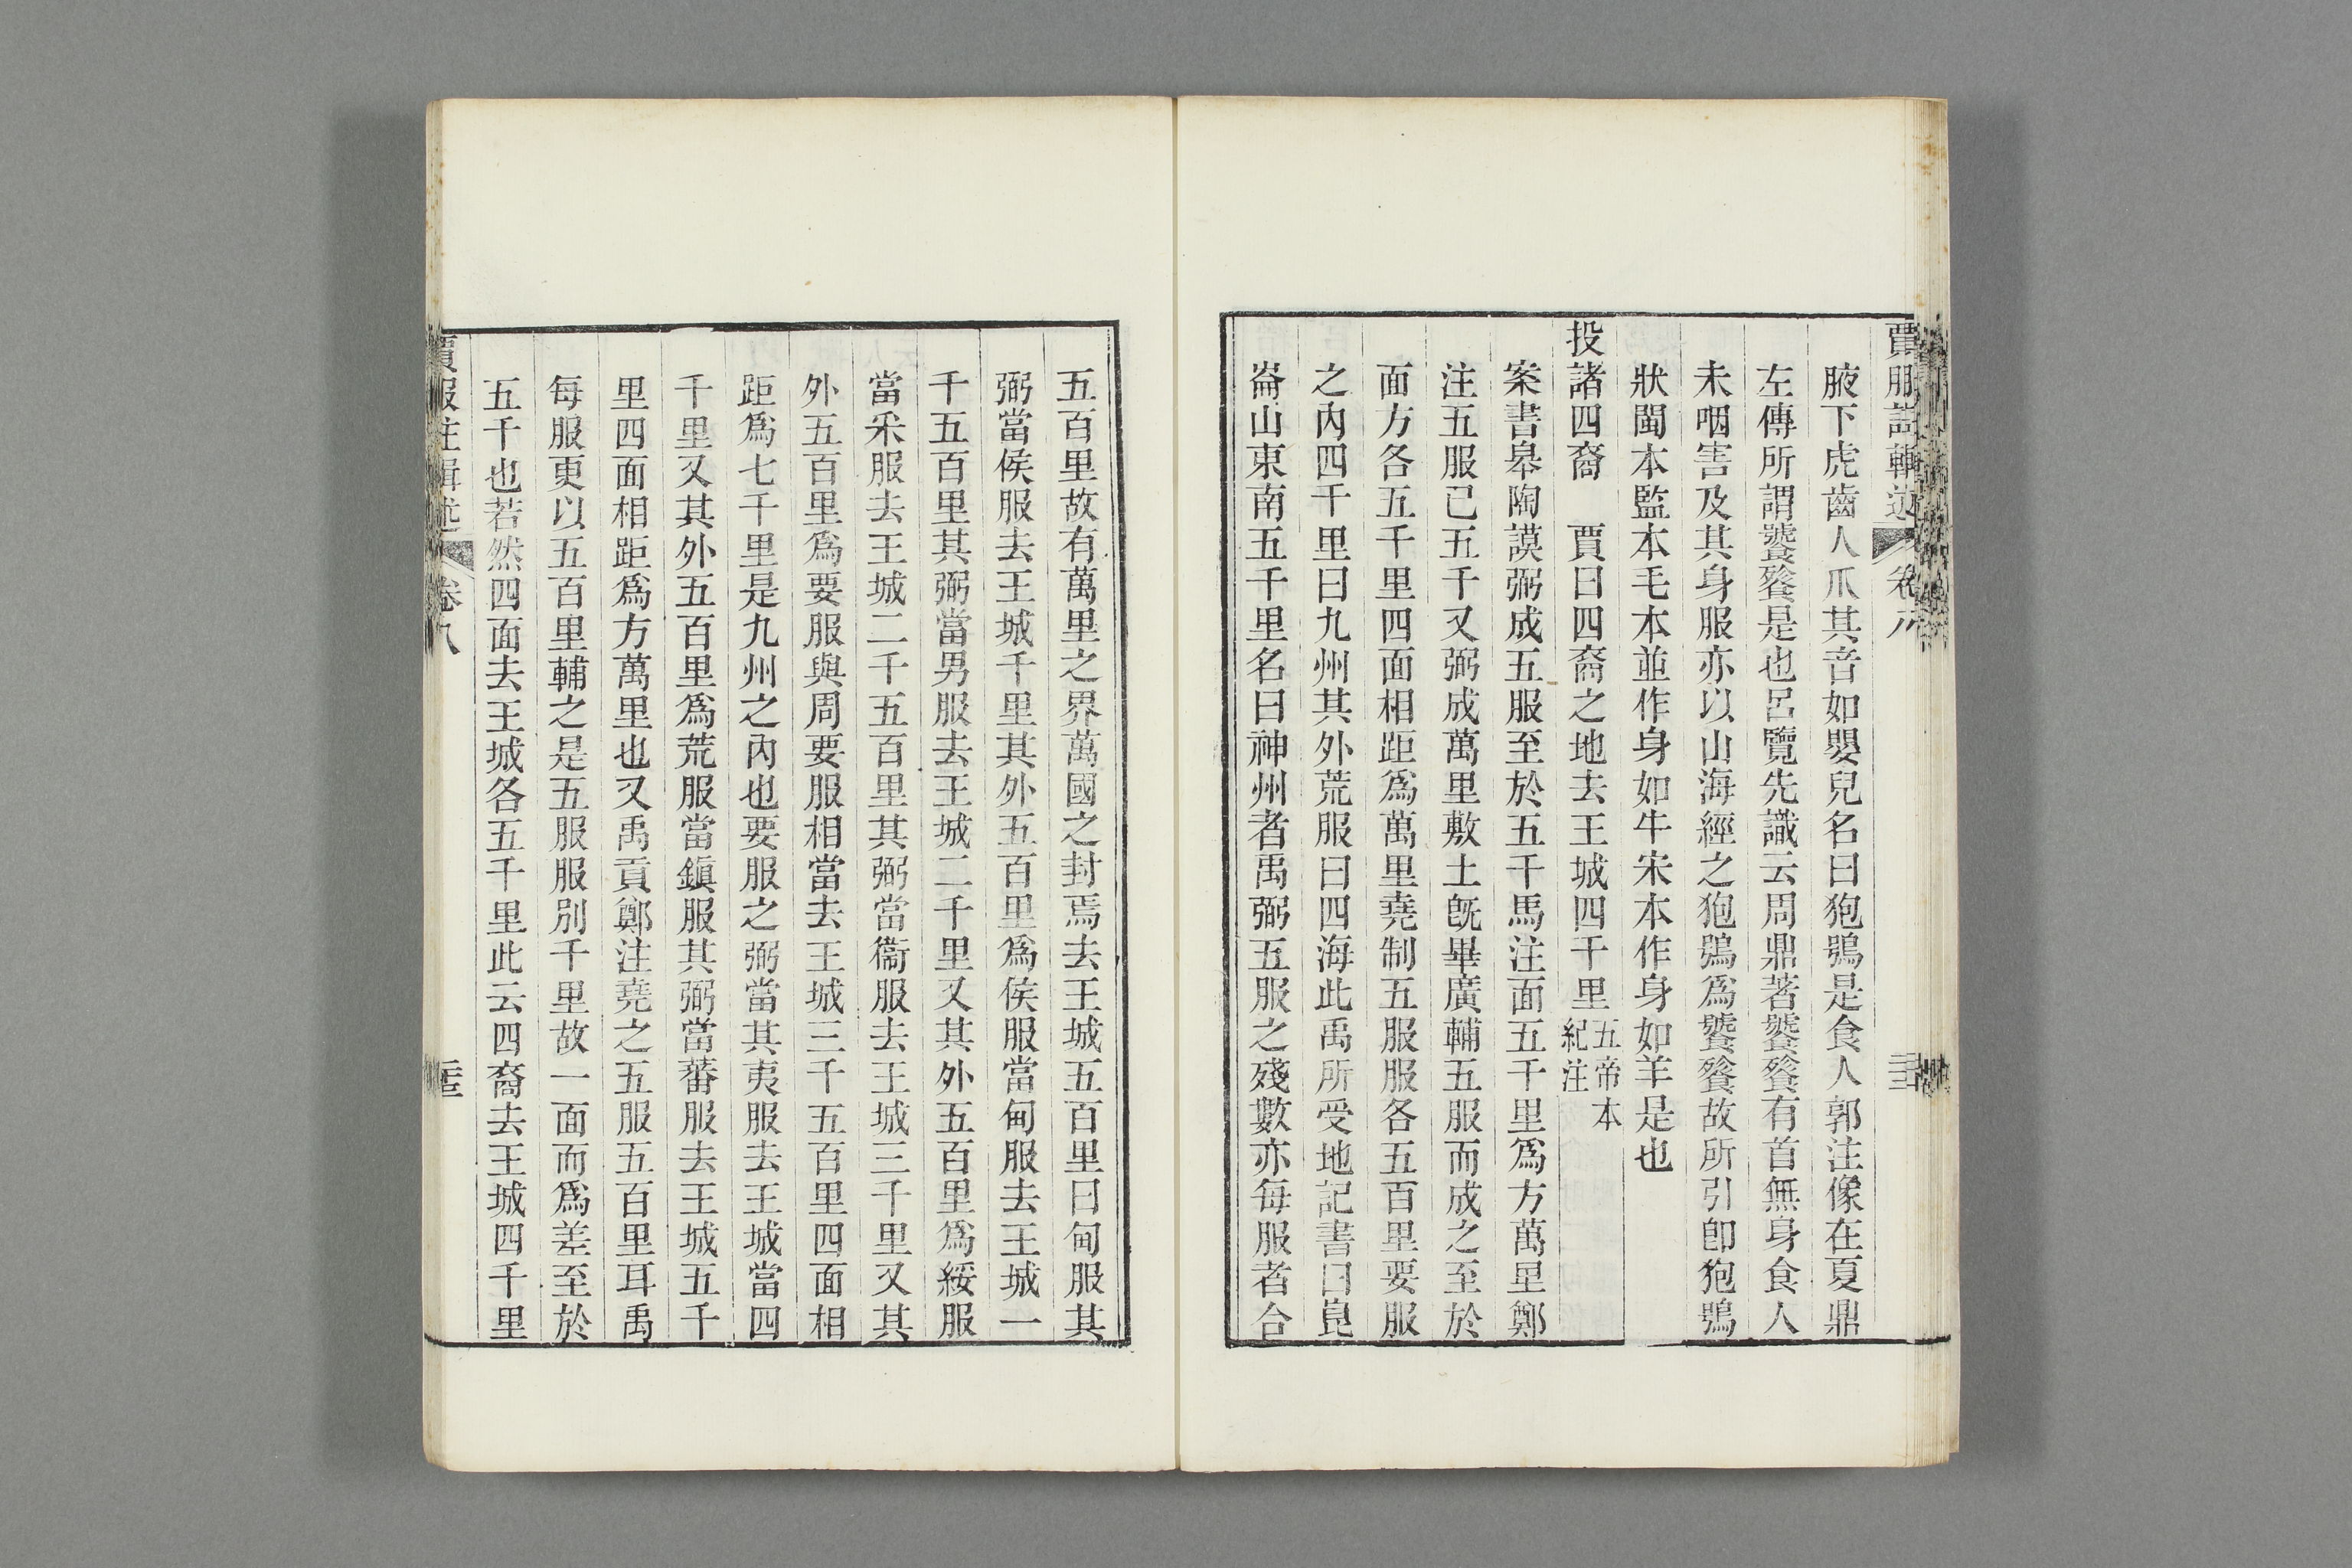 賈服注輯述 卷八 二十二
腋下虎齒人爪其音如嬰兒名曰狍鴞是食人郭注像在夏鼎
左傳所謂饕餮是也呂覽先識云周鼎著饕餮有首無身食人
未咽害及其身服亦以山海經之狍鴞爲饕餮故所引卽狍鴞
狀閩本監本毛本並作身如牛宋本作身如羊是也
投諸四裔 賈曰四裔之地去王城四千里五帝本紀注
案書皋陶謨弼成五服至於五千馬注面五千里爲方萬里鄭
注五服已五千又弼成萬里敷土旣畢廣輔五服而成之至於
面方各五千里四面相距爲萬里堯制五服服各五百里要服
之內四千里曰九州其外荒服曰四海此禹所受地記書曰崑
崙山東南五千里名曰神州者禹弼五服之殘數亦每服者合
五百里故有萬里之界萬國之封焉去王城五百里曰甸服其
弼當侯服去王城千里其外五百里爲侯服當甸服去王城一
千五百里其弼當男服去王城二千里又其外五百里爲綏服
當采服去王城二千五百里其弼當衞服去王城三千里又其
外五百里爲要服與周要服相當去王城三千五百里四面相
距爲七千里是九州之內也要服之弼當其夷服去王城當四
千里又其外五百里爲荒服當鎭服其弼當蕃服去王城五千
里四面相距爲方萬里也又禹貢鄭注堯之五服五百里耳禹
每服更以五百里輔之是五服服別千里故一面而爲差至於
五千也若然四面去王城各五千里此云四裔去王城四千里
賈服注輯述 卷八